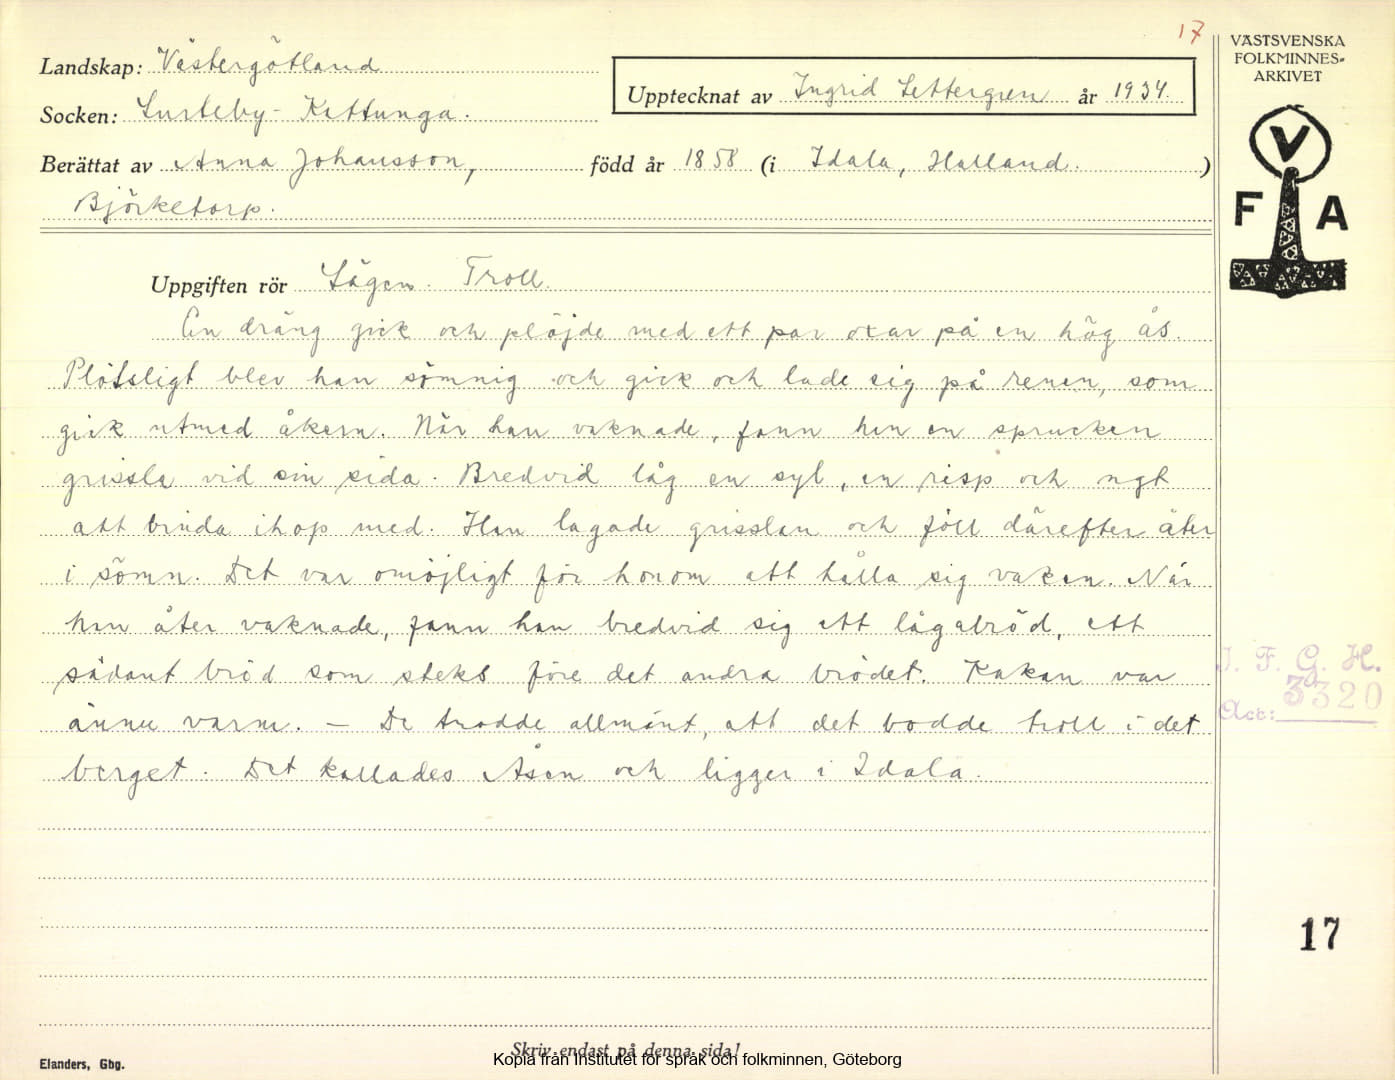 17
VÄSTSVENSKA
FOLKMINNES-
ARKIVET
Landskap: Västergötland
Upptecknat av Ingrid Settergren år 1934.
Socken: Surteby-Kattunga.
Berättat av Anna Johansson, född år 1858 (i Idala, Halland. )
Björketorp.
V
F A
Uppgiften rör Sägen. Troll.
En dräng gick och plöjde med ett par oxar på en hög ås.
Plötsligt blev han sömnig och gick och lade sig på renen, som
gick utmed åkern. När han vaknade, fann han en sprucken
grissla vid sin sida. Bredvid låg en syl, en risp och ngt
att binda ihop med. Han lagade grisslan och föll därefter åter
i sömn. Det var omöjligt för honom att hålla sig vaken. När
han åter vaknade, fann han bredvid sig ett lågabröd, ett
sådant bröd som steks före det andra brödet. Kakan var
ännu varm. – De trodde allmänt, att det bodde troll i det
berget. Det kallades Åsen och ligger i Idala.
I. F. G. H.
Acc: 3320
17
Skriv endast på denna sida!
Elanders, Gbg.
Kopia från Institutet för språk och folkminnen, Göteborg